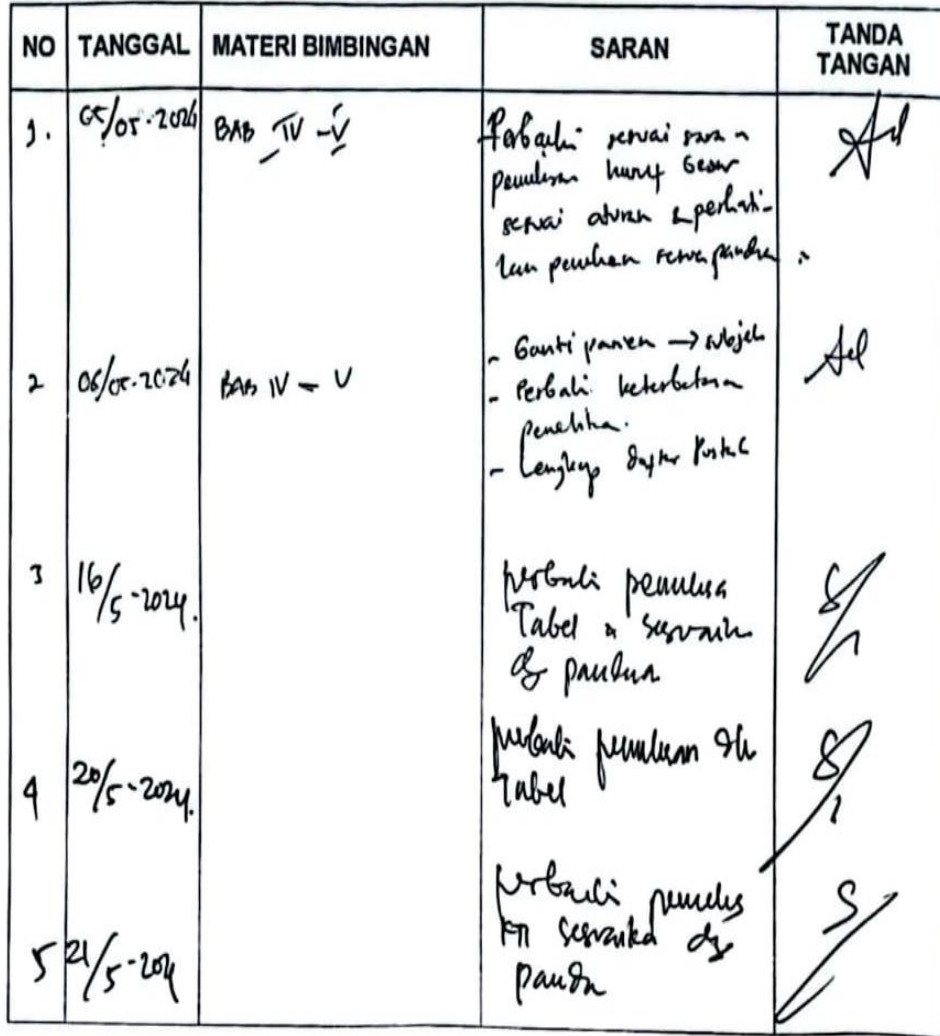 NO TANGGAL MATERI BIMBINGAN SARAN TANDA TANGAN
1. 05/05-2024 BAB IV - V Perbaiki sesuai saran
penulisan huruf besar
sesuai aturan & perhati-
kan penulisan sesuai panduan
2 06/05-2024 BAB IV - V - Ganti pasien → subjek
- Perbaiki keterbatasan
penelitian.
- Lengkap daftar Pustak
3 16/5-2024. perbaiki penulisa
Tabel & sesuaik
dg panduan
4 20/5-2024. perbaiki penulisan
Tabel
5 21/5-204 perbaiki penulis
sesuaika dg
pandu